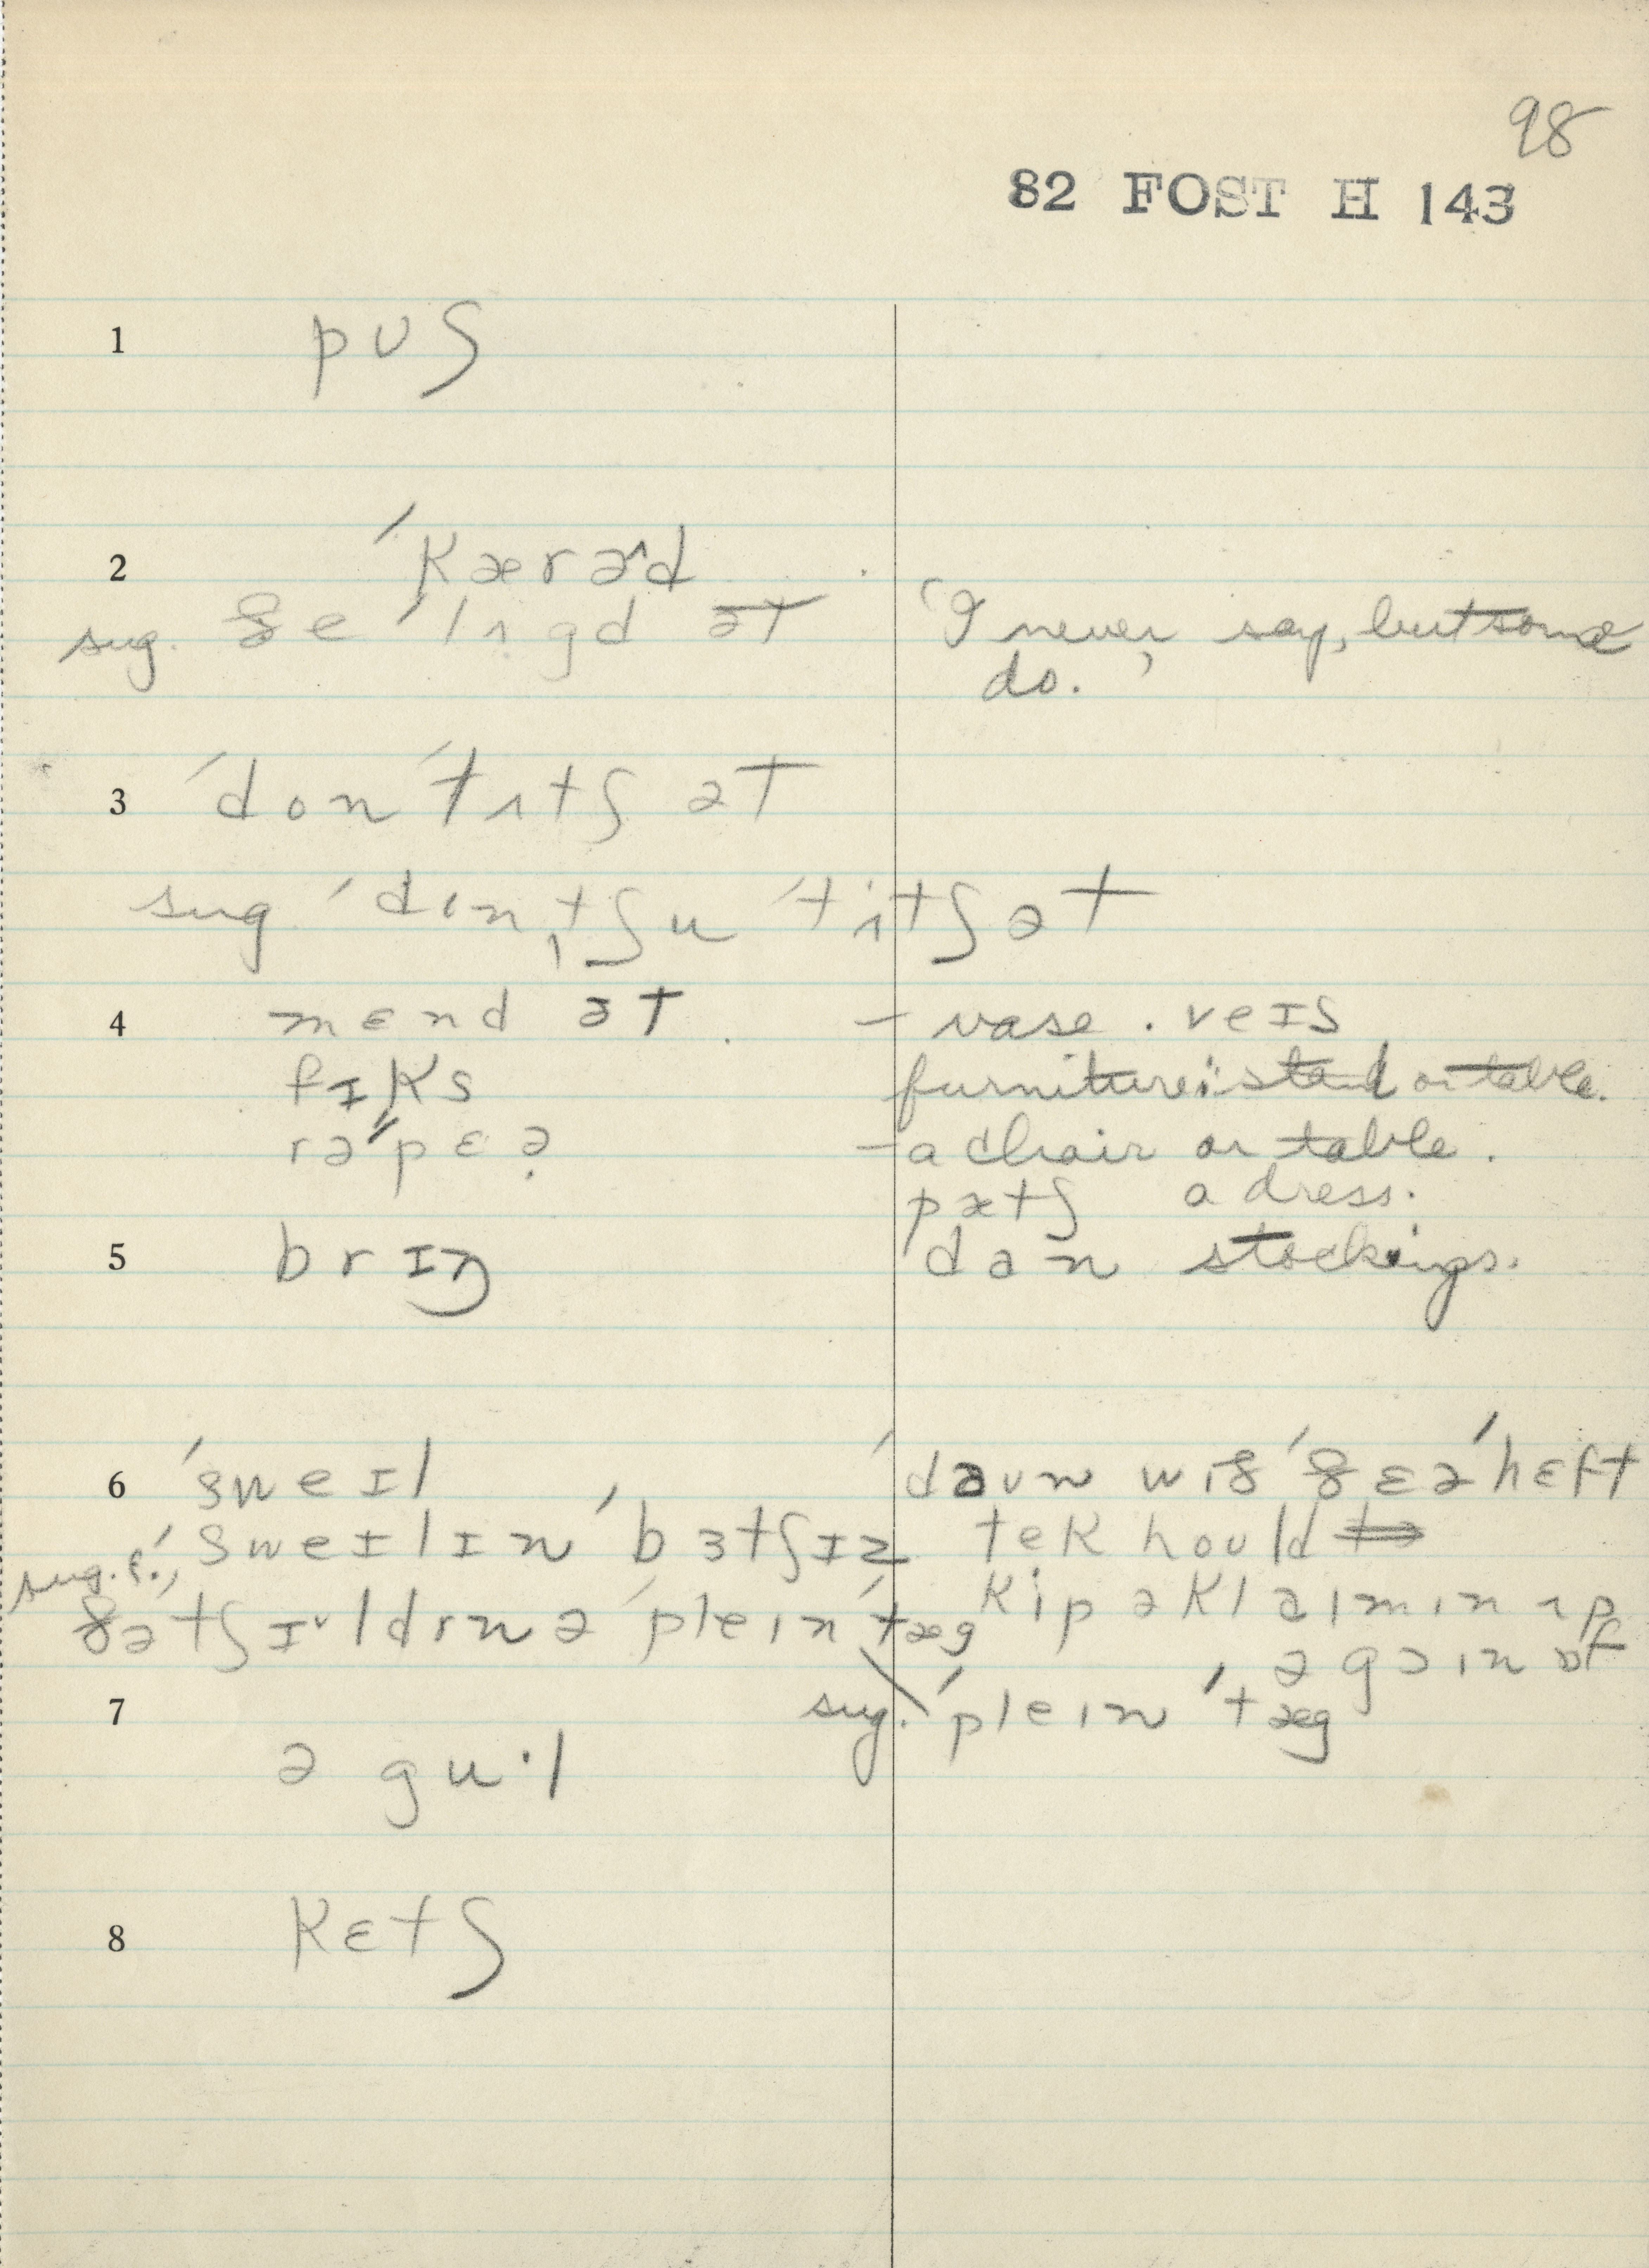 98
82 FOST H 143
1 pʊʃ
2 ˈkærəd
sug. ðe ˈlʌgd ət "I never say, but some
do."
3 ˈdon ˈtʌtʃ ət
sug ˈdontʃu ˈtʌtʃ ət
4 mɛnd ət – vase. veɪs
fɪks furniture: stand or table.
rəˈpɛə – a chair or table.
pætʃ a dress.
5 brɪŋ dan stockings.
6 ˈsweɪl ˈdaʊn wɪð ˈðɛə ˈhɛft
ˈsweɪlɪn ˈbɜtʃɪz tek hould
sug. f., ðə tʃɪldrn ə ˈpleɪn ˈtæg kip ə klaɪmɪn ʌp
ə gɔɪn ɒf
7 sug. ˈpleɪn ˈtæg
ə gu·l
8 kɛtʃ